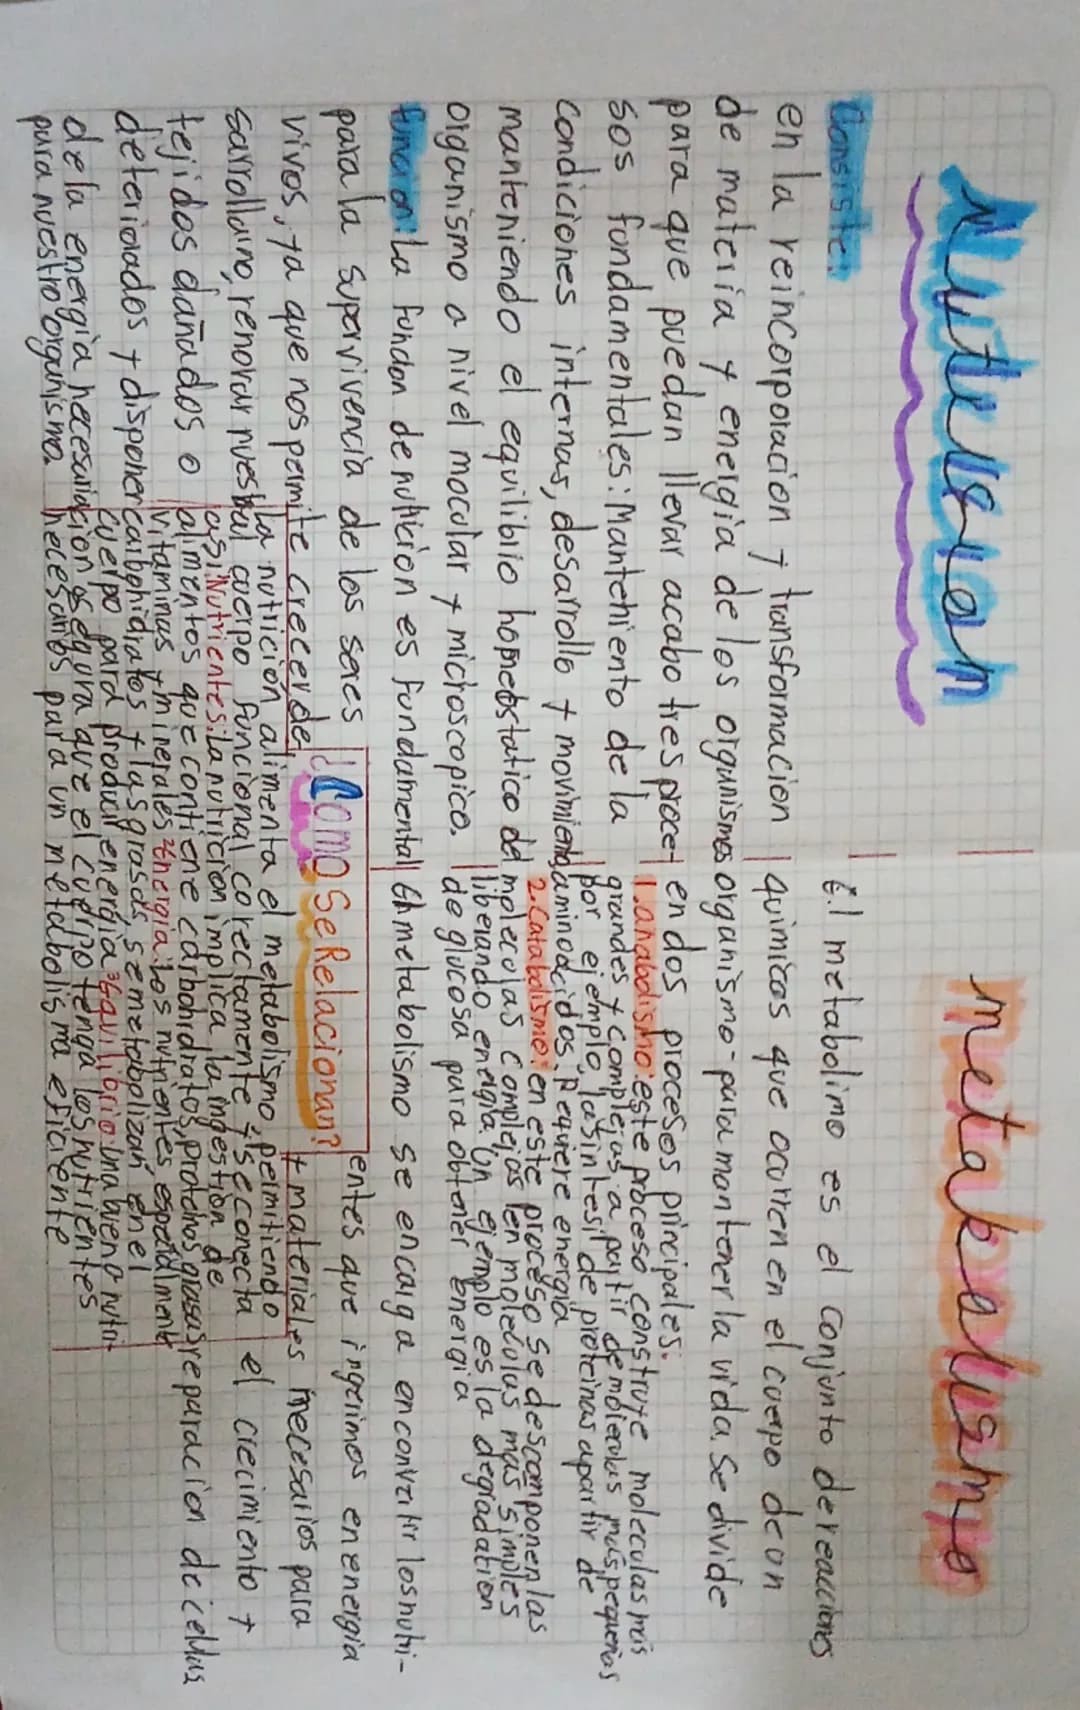 Nutricion
Consiste:
en la reincorporacion y transformacion
de materia y energia de los organismos
para que puedan llevar acabo tres proce-
sos fundamentales: Mantenimiento de la
condiciones internas, desarrollo y movimiento
manteniendo el equilibrio homeostatico del
organismo a nivel macular y microscopico.
funcion: La funcion de nutricion es fundamental
para la supervivencia de los seres
vivos, ya que nos permite crecer, de
sarrollarno, renovar nuestru
tejidos dañados o
deteriorados y disponer
de la energia necesaria
para nuestro organismo.
metabolismo
El metabolimo es el conjunto de reacciones
quimicas que ocurren en el cuerpo de un
organismo-para mantener la vida. Se divide
en dos procesos pircipales.
1.anabolismo: este proceso construye moleculas más
grandes y complejas a partir de moleculas mas pequeñas
por ejemplo, la sintesil de proteinas apartir de
aminoacidos. Requiere energia
2.Catabolismo: en este proceso se descomponen las
moleculas complejas en moleculas mas simples
liberando energia. Un ejemplo es la degradation
de glucosa para obtener energia
El metabolismo se encarga en convertir los nutri-
entes que ingerimos en energia
y materiales necesarios para
el crecimiento y
reparacion de celulas
¿Como Se Relacionan?
La nutrición alimenta el metabolismo, permitiendo
al cuerpo funcional correctamente y se conecta
asi: Nutrientes: La nutricion implica la ingestión de
alimentos que contiene carbohidratos, proteinas, grasas
vitaminas y minerales 2Energia: Los nutrientes especialmente
carbohidratos y las grasas, se metabolizan en el
cuerpo para producir energia 3Equilibrio: Una buena nutri-
cion asegura que el cuerpo tenga los nutrientes
necesarios para un metabolisma eficiente